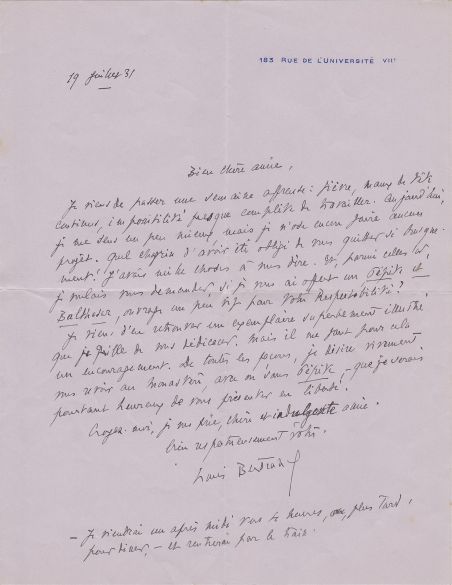 183 RUE DE L'UNIVERSITÉ VIIe
19 juillet 31
Bien chère amie,
Je viens de passer une semaine affreuse : fièvre, maux de tête
continus, impossibilité presque complète de travailler. Aujourd'hui,
je me sens un peu mieux, mais je n'ose encore faire aucun
projet. Quel chagrin d'avoir été obligé de vous quitter si brusque-
ment! J'avais mille choses à vous dire. Et, parmi celles-ci,
je voulais vous demander si je vous ai offert un Pépète et
Balthasar, ouvrage un peu vif pour votre Respectabilité?
Je viens d'en retrouver un exemplaire superbement illustré
que je brûle de vous dédicacer. Mais il me faut pour cela
un encouragement. De toutes les façons, je désire vivement
vous revoir au monastère, avec ou sans Pépète, - que je serais
pourtant heureux de vous présenter en liberté.
Croyez-moi, je vous prie, chère et indulgente amie,
bien respectueusement vôtre.
Louis Bertrand
- Je viendrai un après midi vers 4 heures, ou, plus tard,
pour dîner, - et rentrerai par le train.